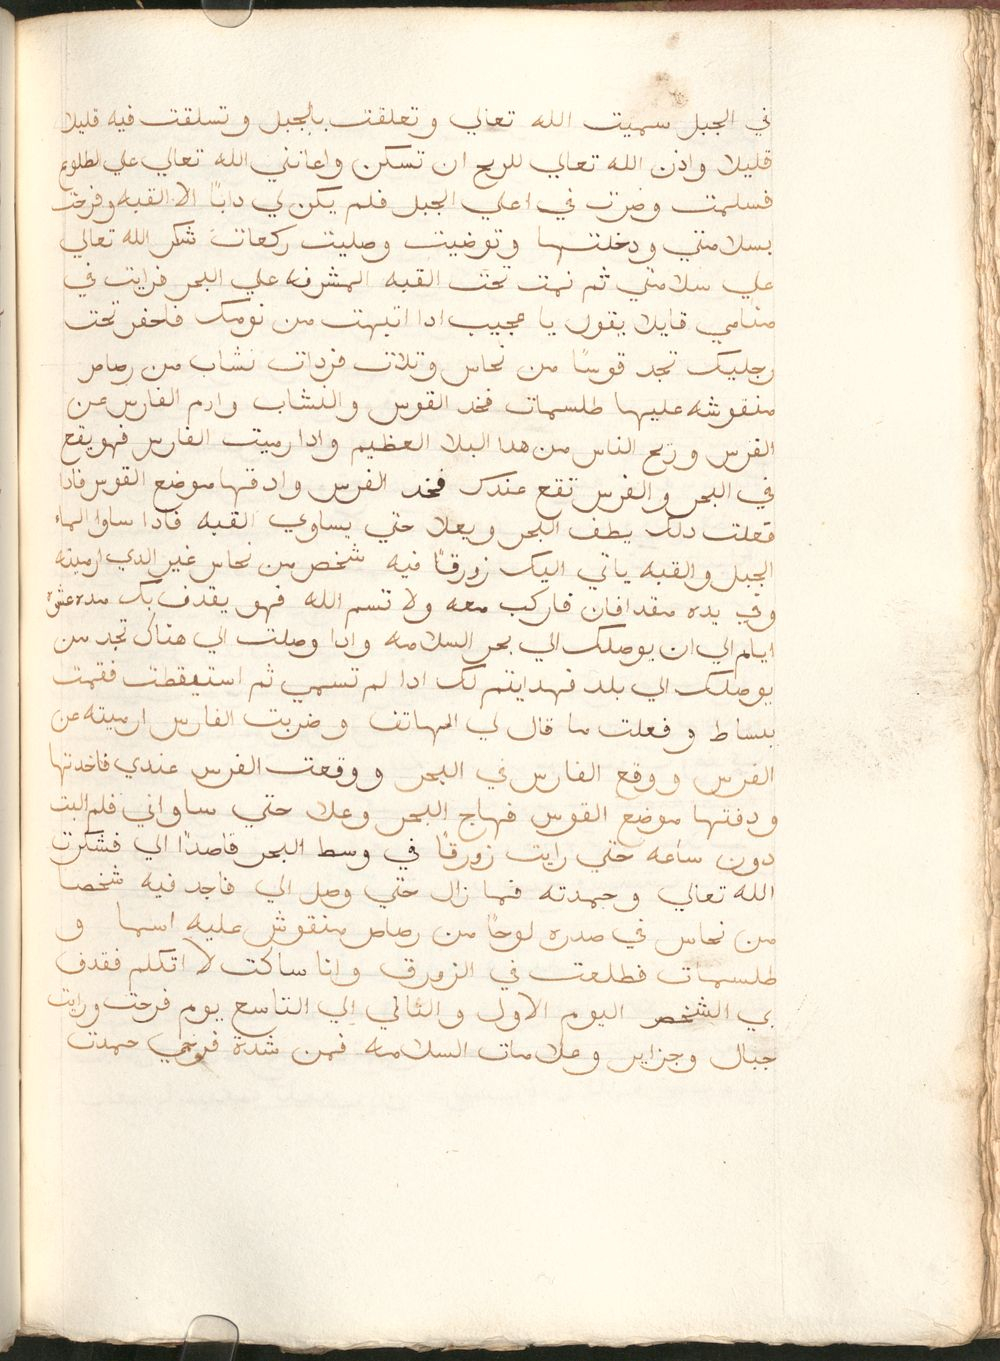 في الجبل سميت الله تعالي وتعلقت بالجبل وتسلقت فيه قليلا
قليلا واذن الله تعالي للريح ان تسكن واعانني الله تعالي علي الطلوع
فسلمت وضرت في اعلي الجبل فلم يكن لي دابًا الا القبه وفرحت
بسلامتي ودخلتها وتوضيت وصليت ركعات شكر الله تعالي
علي سلامتي ثم نمت تحت القبه المشرفه علي البحر فرايت في
منامي قايلا يقول يا عجيب ادا انتبهت من نومك فاحفر تحت
رجليك تجد قوسًا من نحاس وتلات فردات نشاب من رصاص
منقوشه عليها طلسمات فخد القوس والنشاب وارم الفارس عن
الفرس وريح الناس من هدا البلا العظيم وادا رميت الفارس فهو يقع
في البحر والفرس تقع عندك فخد الفرس وادفنها موضع القوس فادا
فعلت دلك يطف البحر ويعلا حتي يساوي القبه فادا ساوا الماء
الجبل والقبه ياتي اليك زورقًا فيه شخص من نحاس غير الدي ارميته
وفي يده مقدافان فاركب معه ولا تسم الله فهو يقدف بك مده عشره
ايام الي ان يوصلك الي بحر السلامه وادا وصلت الي هناك تجد من
يوصلك الي بلد فهدا يتم لك ادا لم تسمي ثم استيقطت فقمت
ببساط وفعلت ما قال لي الهاتف وضربت الفارس ارميته عن
الفرس ووقع الفارس في البحر ووقعت الفرس عندي فاخدتها
ودفنتها موضع القوس فهاج البحر وعلا حتي ساواني فلم البت
دون ساعه حتي رايت زورقًا في وسط البحر قاصدًا الي فشكرت
الله تعالي وحمدته فما زال حتي وصل الي فاجد فيه شخصا
من نحاس في صدره لوحًا من رصاص منقوش عليه اسما و
طلسمات فطلعت في الزورق وانا ساكت لا اتكلم فقدف
بي الشخص اليوم الاول والثاني الي التاسع يوم فرحت ورايت
جبال وجزاير وعلامات السلامه فمن شدة فرحي حمدت